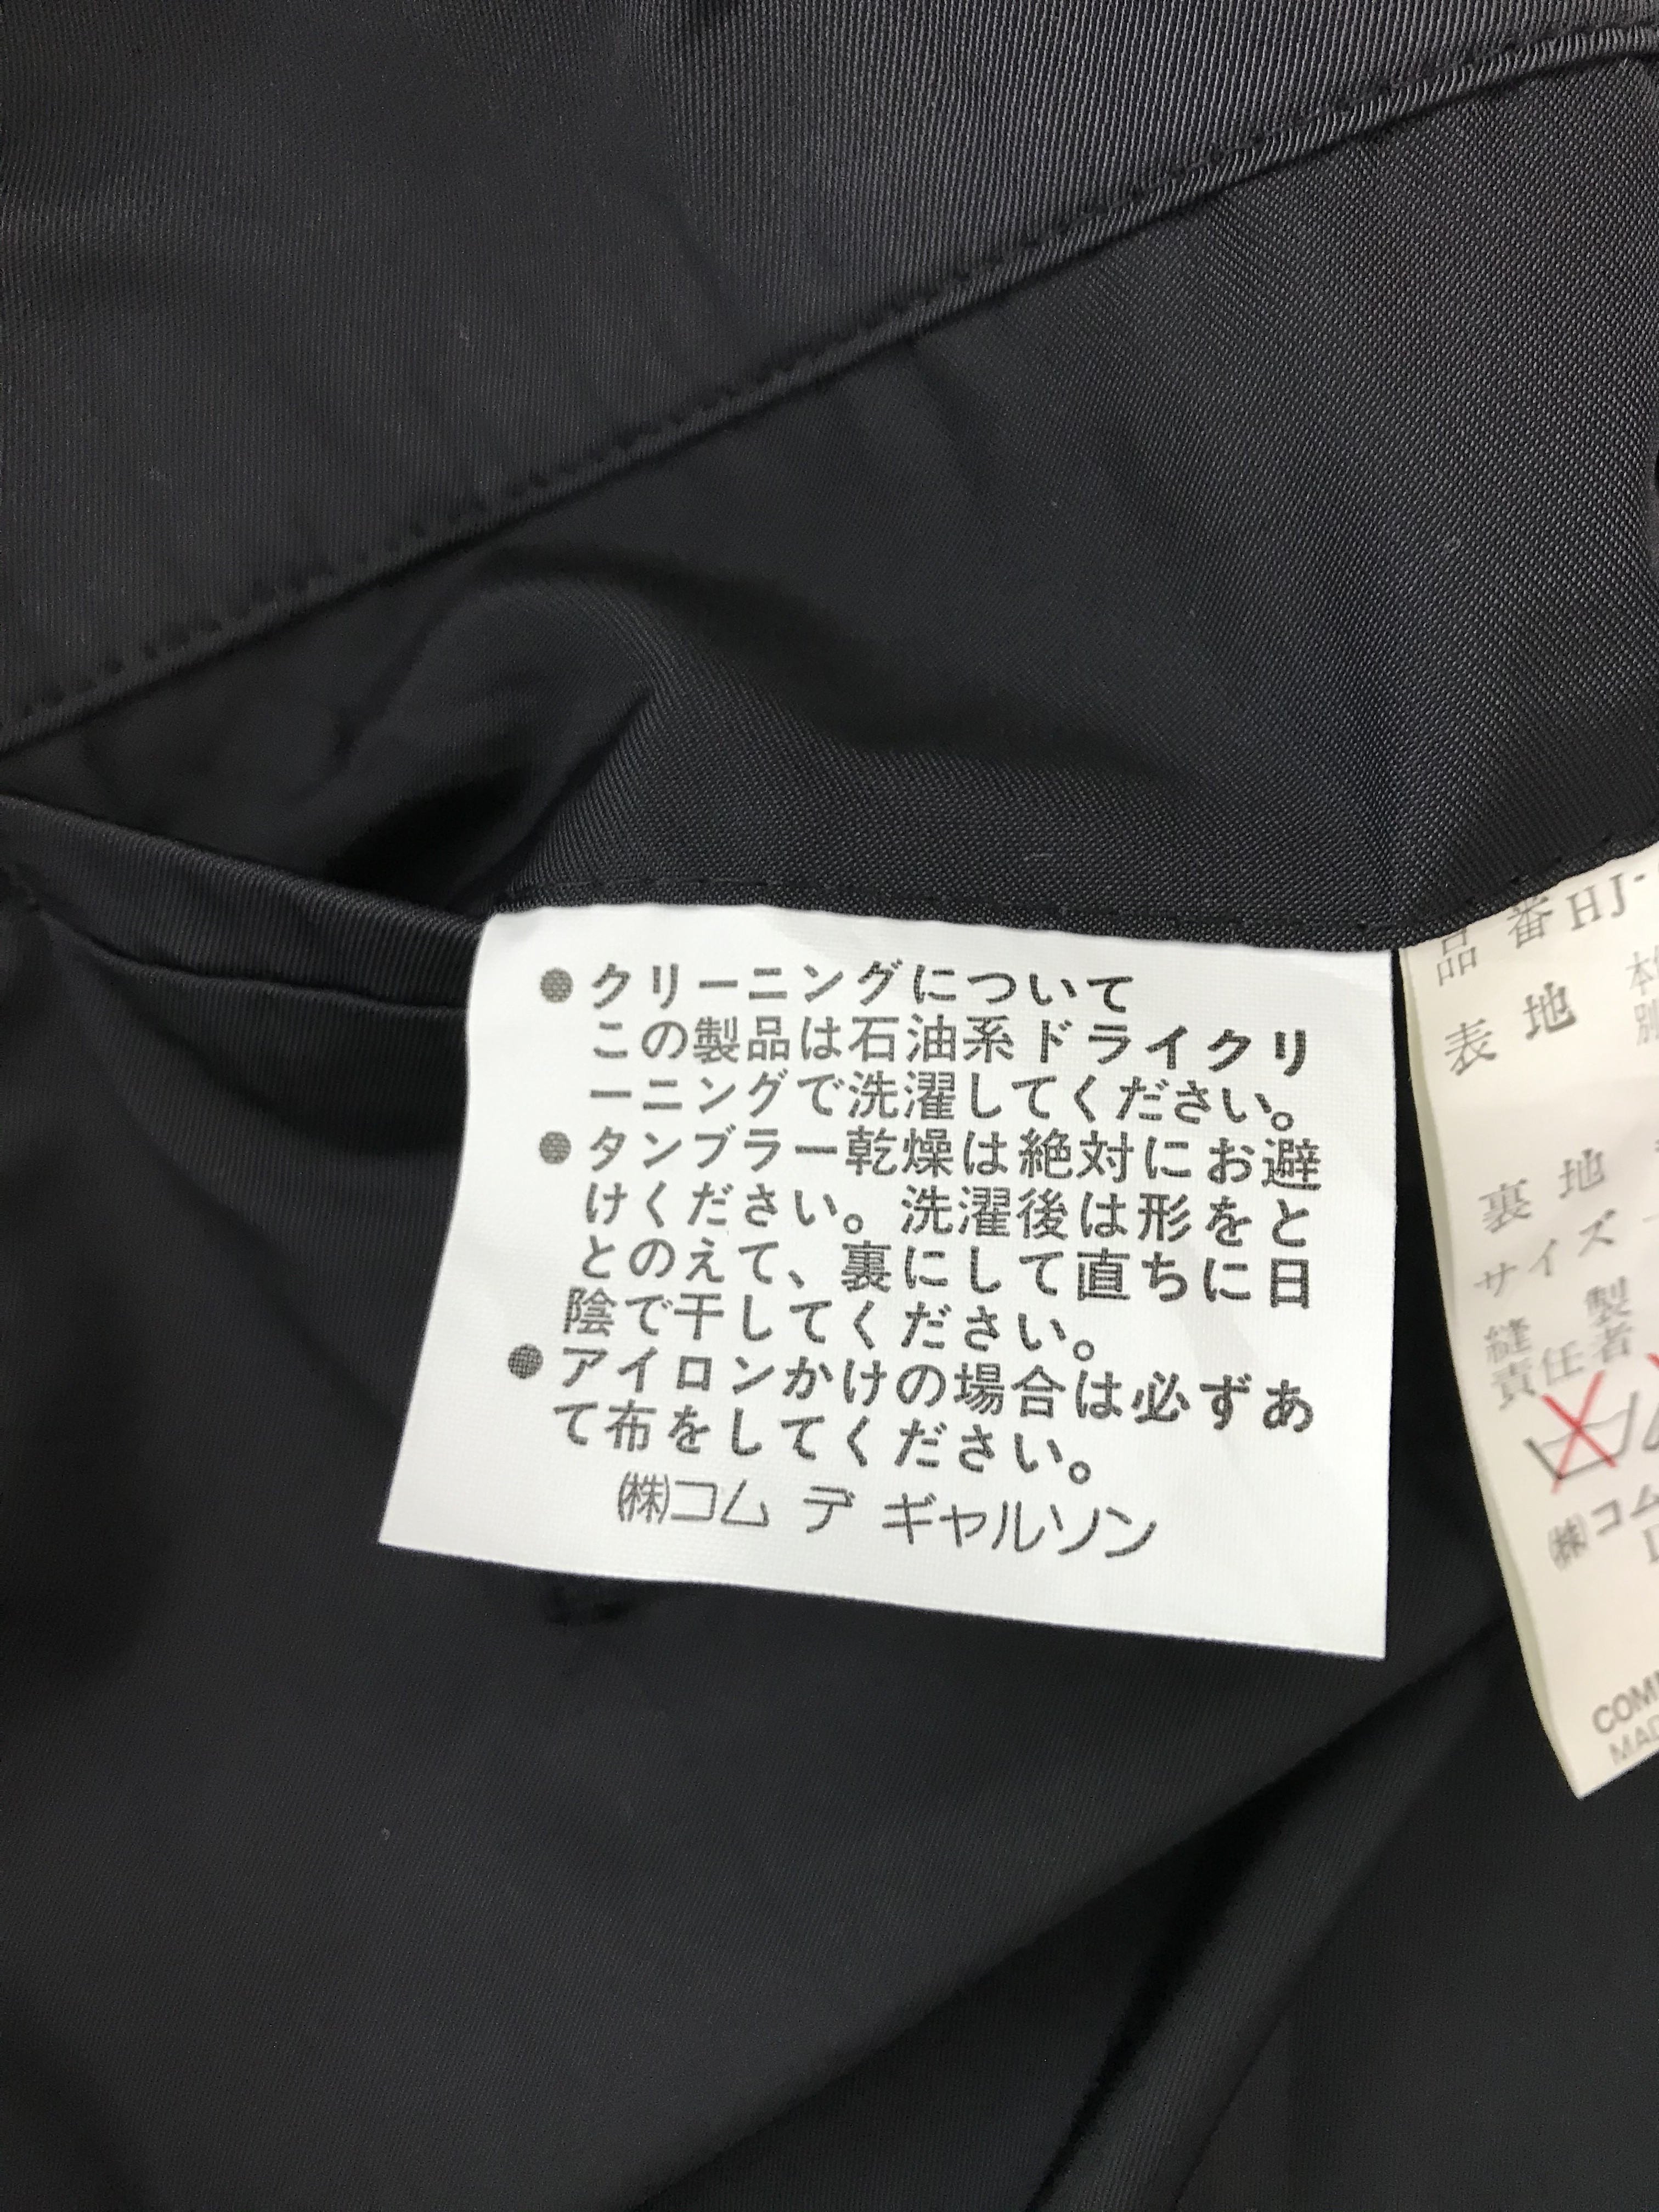 ●クリーニングについて
この製品は石油系ドライクリ
ーニングで洗濯してください。
●タンブラー乾燥は絶対にお避
けください。洗濯後は形をと
とのえて、裏にして直ちに日
陰で干してください。
●アイロンかけの場合は必ずあ
て布をしてください。
㈱コム デ ギャルソン
品番HJ-
表地 本
別
裏地
サイズ
縫製
責任者
㈱コム
COMM
MAD